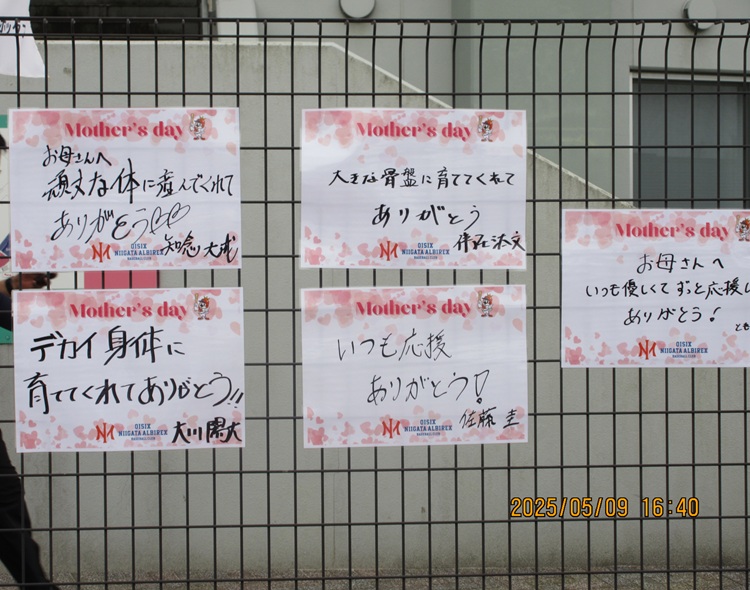 Mother's day
お母さんへ
頑丈な体に産んでくれて
ありがとう♡♡
OISIX
NIIGATA ALBIREX
BASEBALL CLUB
知念 大成
Mother's day
大きな骨盤に育ててくれて
ありがとう
OISIX
NIIGATA ALBIREX
BASEBALL CLUB
Mother's day
お母さんへ
いつも優しくてずっと応援し
ありがとう!
とも
OISIX
NIIGATA ALBIREX
BASEBALL CLUB
Mother's day
デカイ身体に
育ててくれてありがとう!!
OISIX
NIIGATA ALBIREX
BASEBALL CLUB
大川 陽大
Mother's day
いつも応援
ありがとう!
OISIX
NIIGATA ALBIREX
BASEBALL CLUB
佐藤 圭
2025/05/09 16:40